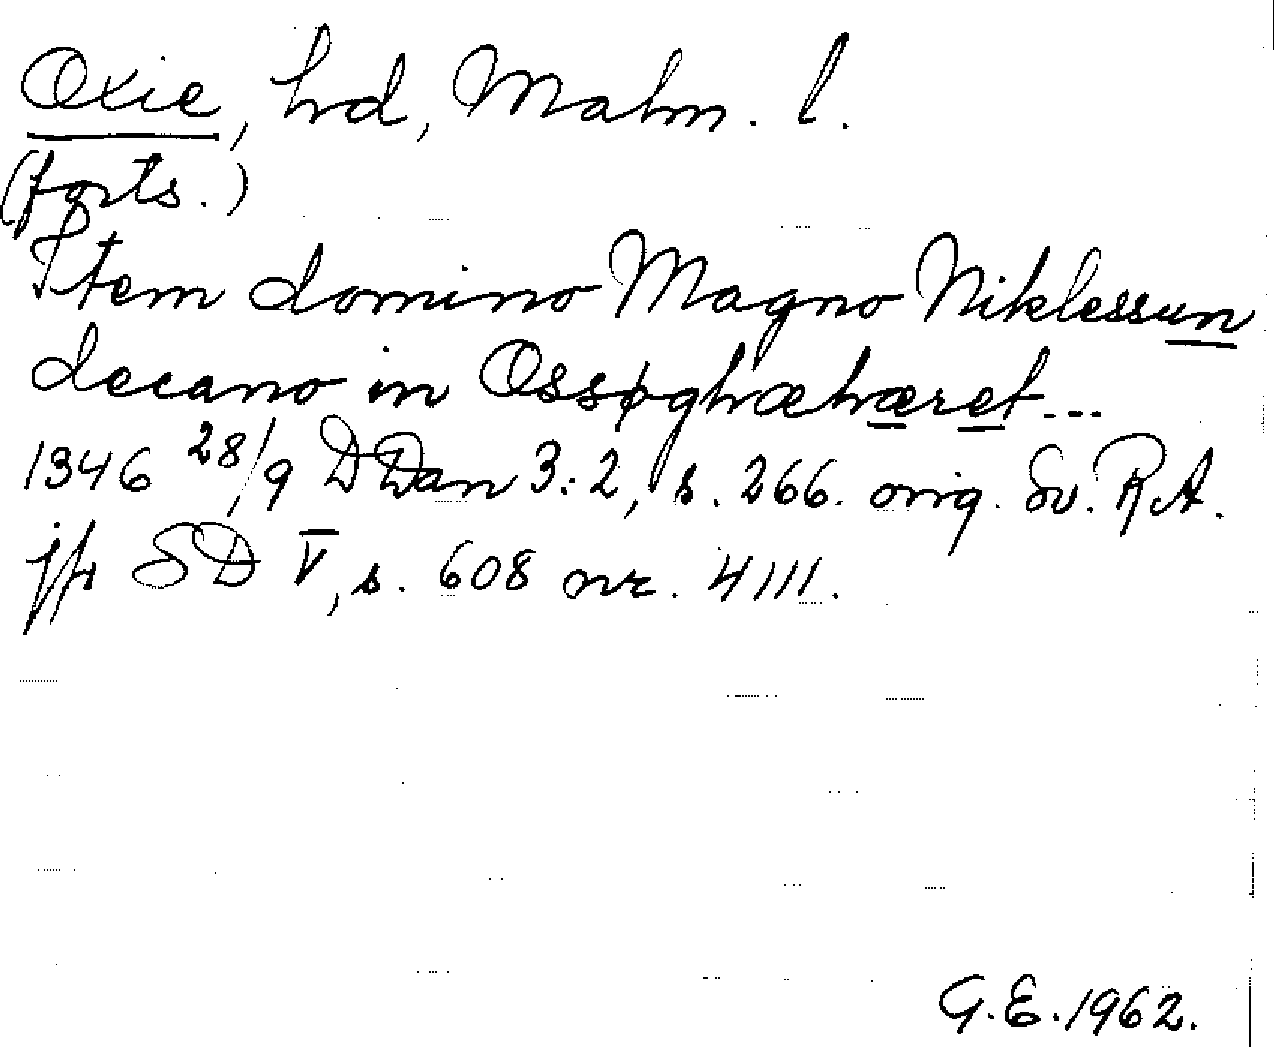 Oxie, hrd, Malm. l.
(forts.)
Item domino Magno Niklessun
decano in Ossøghæhæret...
1346 28/9 DDan 3:2, s. 266. orig. Sv. RA.
jfr SD V, s. 608 nr. 4111.
G.E. 1962.